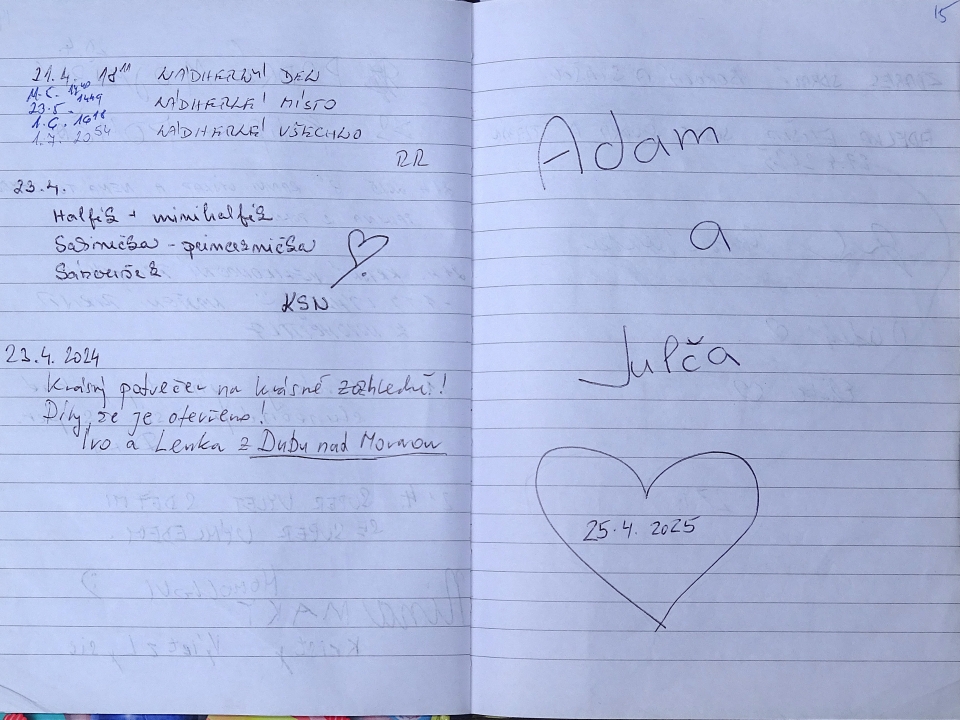 15
21.4. 18¹¹ NÁDHERNÝ DEN
NÁDHERNÉ MÍSTO
23.5. 1449
1.6. 16¹⁸ NÁDHERNÉ VŠECHNO
1.7. 20⁵⁴
RR
23.4.
Halfík + minihalfík
Sašnička - princeznička
Sároušek
KSN
23.4. 2024
Krásný potvečer na krásné rozhledně!
Díky, že je otevřeno!
Ivo a Lenka z Dubu nad Moravou
Adam
a
Julča
25.4. 2025